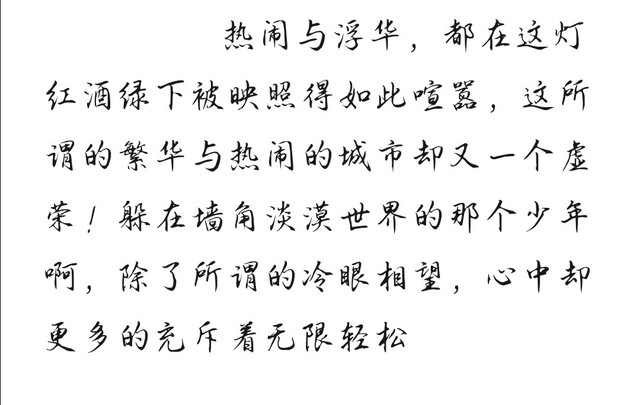 热闹与浮华，都在这灯
红酒绿下被映照得如此喧嚣，这所
谓的繁华与热闹的城市却又一个虚
荣！躲在墙角淡漠世界的那个少年
啊，除了所谓的冷眼相望，心中却
更多的充斥着无限轻松